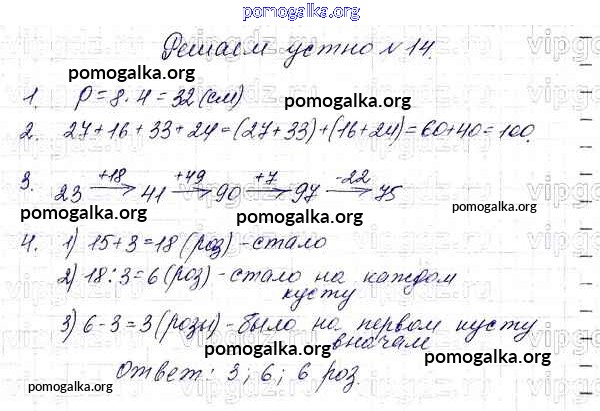 pomogalka.org
Решаем устно № 14.
pomogalka.org
1. P = 8 · 4 = 32 (см)
pomogalka.org
2. 27 + 16 + 33 + 24 = (27 + 33) + (16 + 24) = 60 + 40 = 100.
3. 23 +18→ 41 +49→ 90 +7→ 97 -22→ 75
pomogalka.org pomogalka.org pomogalka.org
4. 1) 15 + 3 = 18 (роз) - стало
2) 18 : 3 = 6 (роз) - стало на каждом
кусту
pomogalka.org
3) 6 - 3 = 3 (розы) - было на первом кусту
вначале
pomogalka.org pomogalka.org
Ответ: 3; 6; 6 роз.
pomogalka.org pomogalka.org